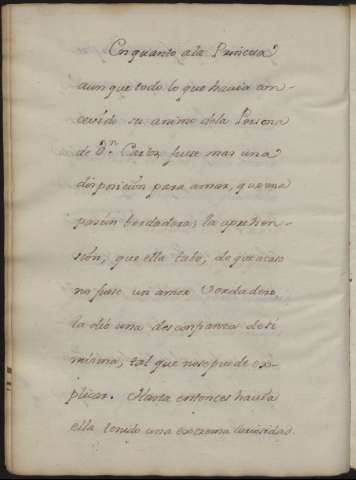 En quanto ala Princesa
aunque todo lo que havia con-
cevido su animo dela Persona
de Dn. Carlos, fuese mas una
disposición para amar, que una
pasion berdadera; la aprehen-
sion, que ella tubo, de que acaso
no fuese un amor Verdadero,
la dió una desconfianza de sí
misma, tal que nose puede ex-
plicar. Hasta entonces havia
ella tenido una extrema curiosidad